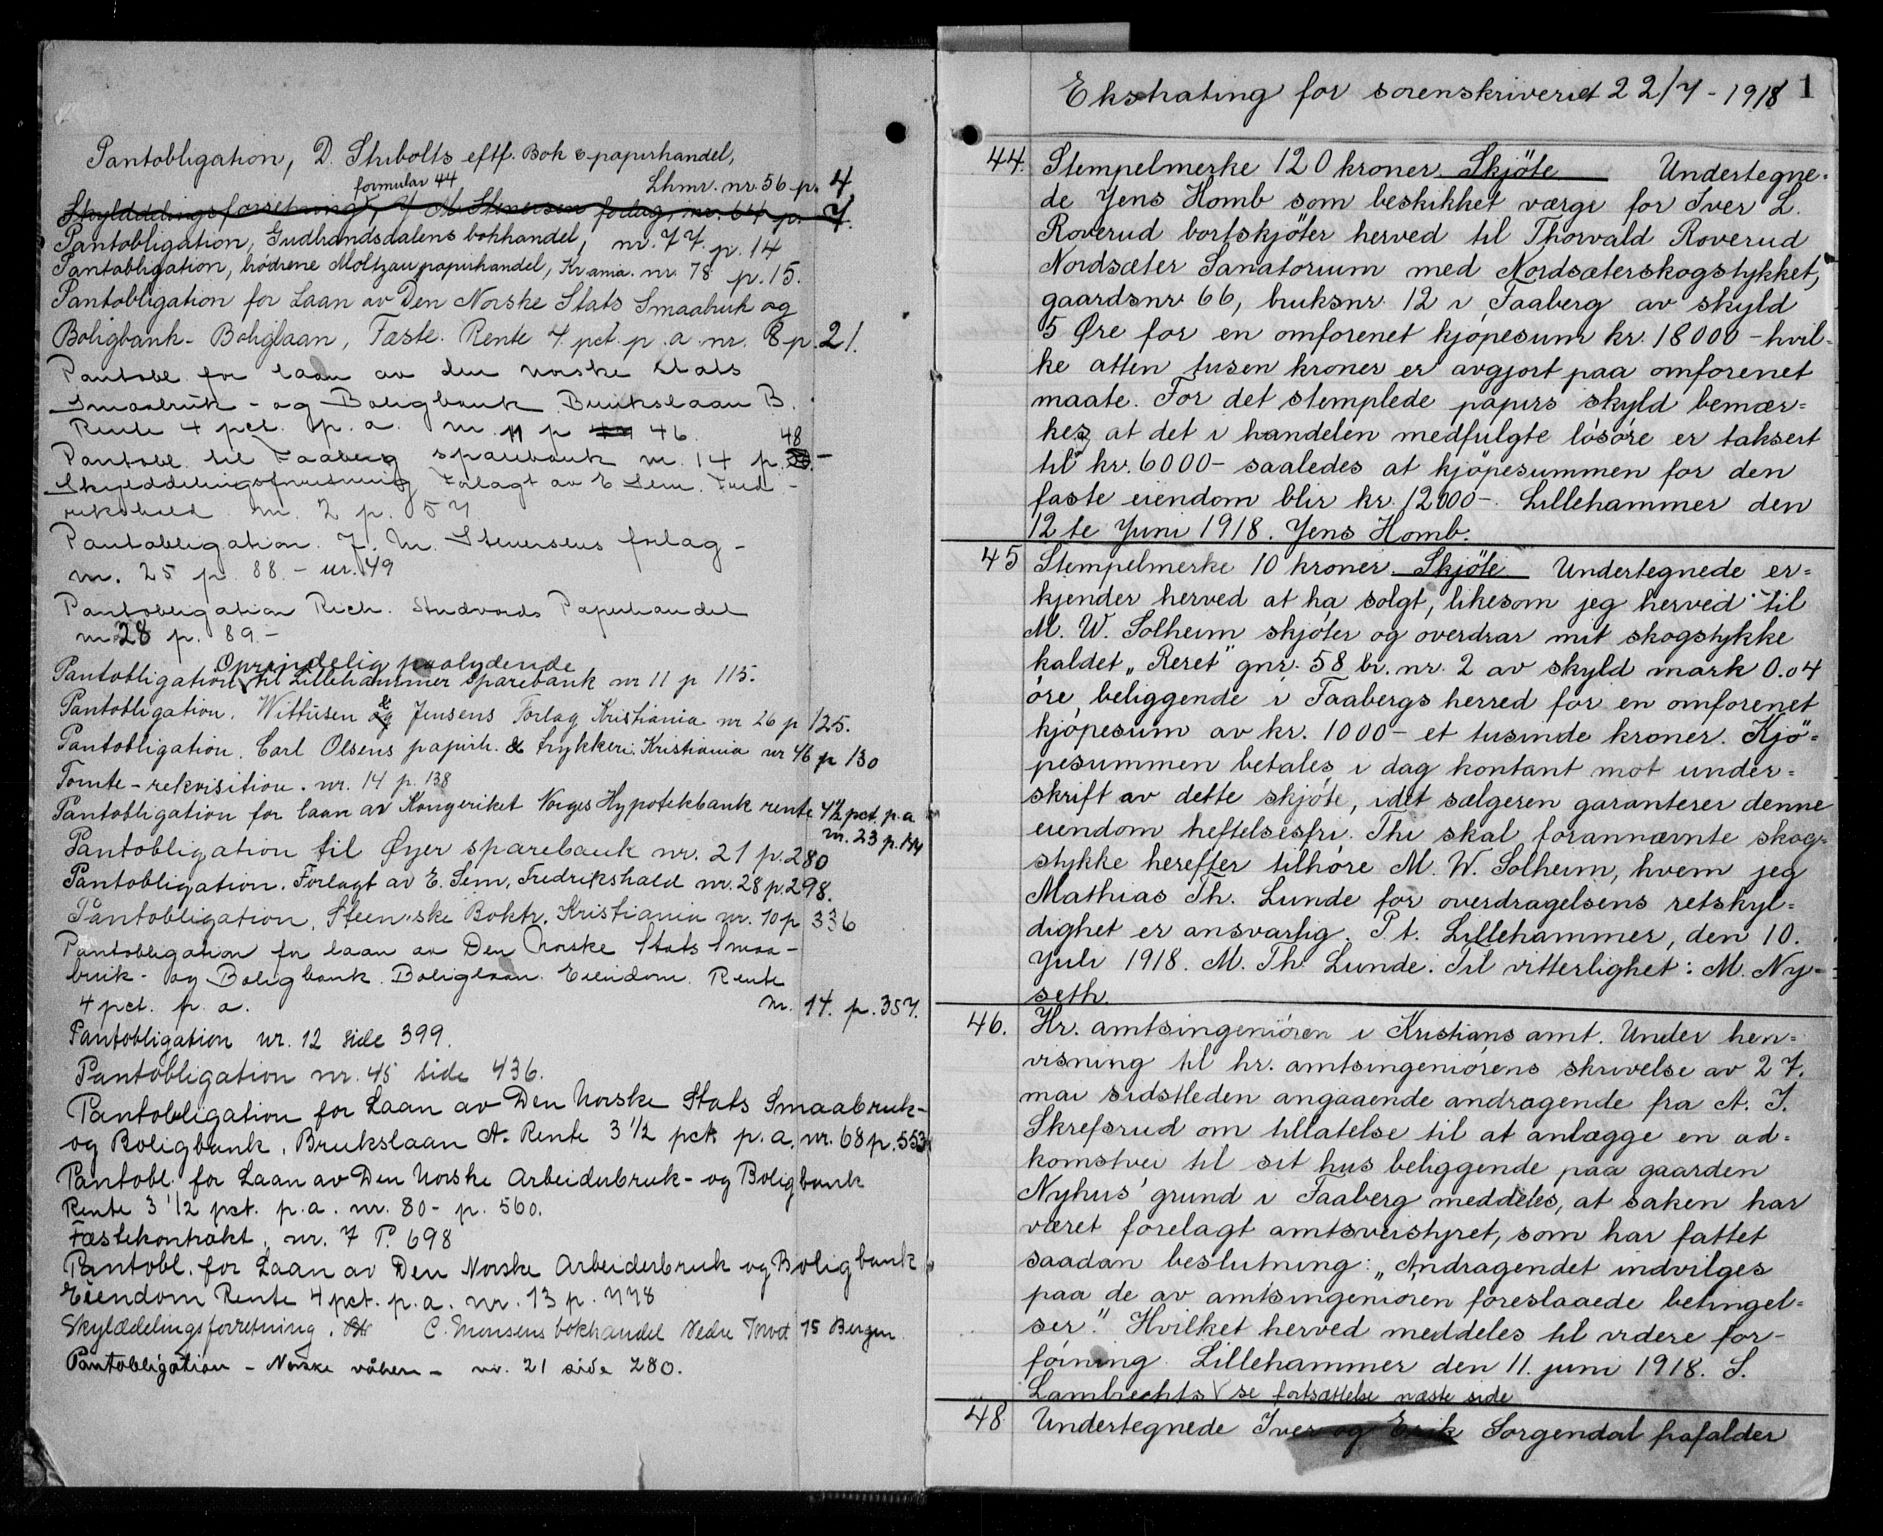 Pantobligation, D. Stribolts eftf. Bok & papirhandel,
formular 44
Lhmr. nr. 56 p. 4
Skylddelingsforretning, J. M. Stenersen forlag, nr. 64 p. 7.
Pantobligation, Gudbrandsdalens bokhandel, nr. 77. p. 14
Pantobligation, brødrene Moltzau papirhandel, Kr.ania. nr. 78 p. 15.
Pantobligation for Laan av Den Norske Stats Smaabruk og
Boligbank - Boliglaan, Fæste. Rente 4 pct. p. a. nr. 8 p. 21.
Pantobl. for laan av den norske stats
Smaabruk - og Boligbank. Brukslaan B.
Rente 4 pct. p. a. nr. 11 p 46.
Pantobl. til Faaberg sparebank nr. 14 p. 48 -
Skylddelingsforretning Forlagt av E Sem. Fred-
rikshald. nr. 2 p. 57
Pantobligation. J. M. Stenersens forlag -
nr. 25 p. 88. - nr. 49
Pantobligation Rich. Andvords Papirhandel
nr 28 p. 89. -
Oprindelig paalydende
Pantobligation til Lillehammer sparebank nr 11 p 115.
Pantobligation. Wittusen & Jensens Forlag Kristiania nr 26 p 125.
Pantobligation. Carl Olsens papirh. & trykkeri Kristiania nr 46 p 130
Tomte - rekvisition. nr. 14 p. 138
Pantobligation for laan av Kongeriket Norges Hypotekbank rente 4½ pct. p. a
nr. 23 p. 144
Pantobligation til Øyer sparebank nr. 21 p. 280
Pantobligation. Forlagt av E. Sem, Fredrikshald nr. 28 p. 298.
Pantobligation, Steen'ske Boktr. Kristiania nr. 10 p 336
Pantobligation for laan av Den Norske Stats Smaa-
bruk - og Boligbank. Boliglaan. Eiendom. Rente
4 pct. p. a. nr. 14. p. 357.
Pantobligation nr. 12 side 399.
Pantobligation nr. 45 side 436.
Pantobligation for Laan av Den Norske Stats Smaabruk-
og Boligbank. Brukslaan A. Rente 3 1/2 pct. p. a. nr. 68 p. 553
Pantobl. for Laan av Den Norske Arbeiderbruk - og Boligbank
Rente 3 1/2 pct. p. a. nr. 80 - p. 560.
Fæstekontrakt, nr. 7 P. 698
Pantobl. for Laan av Den Norske Arbeiderbruk og Boligbank
Eiendom Rente 4 pct. p. a. nr. 13 p. 778
Skylddelingsforretning. C. Monsens bokhandel Nedre Torvd 15 Bergen
Pantobligation - Norske våben - nr. 21 side 280.
Ekstrating for sorenskriveriet 22/7 - 1918 1
44. Stempelmerke 120 kroner. Skjöte Undertegne-
de Jens Homb som beskikket værge for Iver L.
Roverud bortskjöter herved til Thorvald Roverud
Nordsæter Sanatorium med Nordsæterskogstykket,
gaardsnr. 66, bruksnr. 12 i Faaberg av skyld
5 Øre for en omforenet kjöpesum kr. 18000 - hvil-
ke atten tusen kroner er avgjort paa omforenet
maate. For det stemplede papirs skyld bemær-
kes at det i handelen medfulgte lösöre er taksert
til kr. 6000 - saaledes at kjöpesummen for den
faste eiendom blir kr. 12000 -. Lillehammer den
12 te Juni 1918. Jens Homb.
45 Stempelmerke 10 kroner. Skjöte Undertegnede er-
kjender herved at ha solgt, likesom jeg herved til
M. W. Solheim skjöter og overdrar mit skogstykke
kaldet „Reret" gnr. 58 br. nr. 2 av skyld mark 0.04
öre, beliggende i Faabergs herred for en omforenet
kjöpesum av kr. 1000 - et tusinde kroner. Kjö-
pesummen betales i dag kontant mot under-
skrift av dette skjöte, idet sælgeren garanterer denne
eiendom heftelsesfri. Thi skal forannævnte skog-
stykke herefter tilhöre M. W. Solheim, hvem jeg
Mathias Th. Lunde for overdragelsens retskyl-
dighet er ansvarlig. P. t. Lillehammer, den 10.
Juli 1918. M. Th. Lunde. Til vitterlighet: M. Ny-
seth.
46. Hr. amtsingeniören i Kristians amt. Under hen-
visning til hr. amtsingeniörens skrivelse av 27.
mai sidstleden angaaende andragende fra A. J.
Skrefsrud om tillatelse til at anlægge en ad-
komstvei til sit hus beliggende paa gaarden
Nyhus' grund i Faaberg meddeles, at saken har
været forelagt amtsveistyret, som har fattet
saadan beslutning: „Andragendet indvilges
paa de av amtsingeniören foreslaaede betingel-
ser." Hvilket herved meddeles til videre for-
föining. Lillehammer den 11. juni 1918. S.
Lambrechts √ se fortsættelse næste side
48 Undertegnede Iver og Erik Sorgendal frafalder